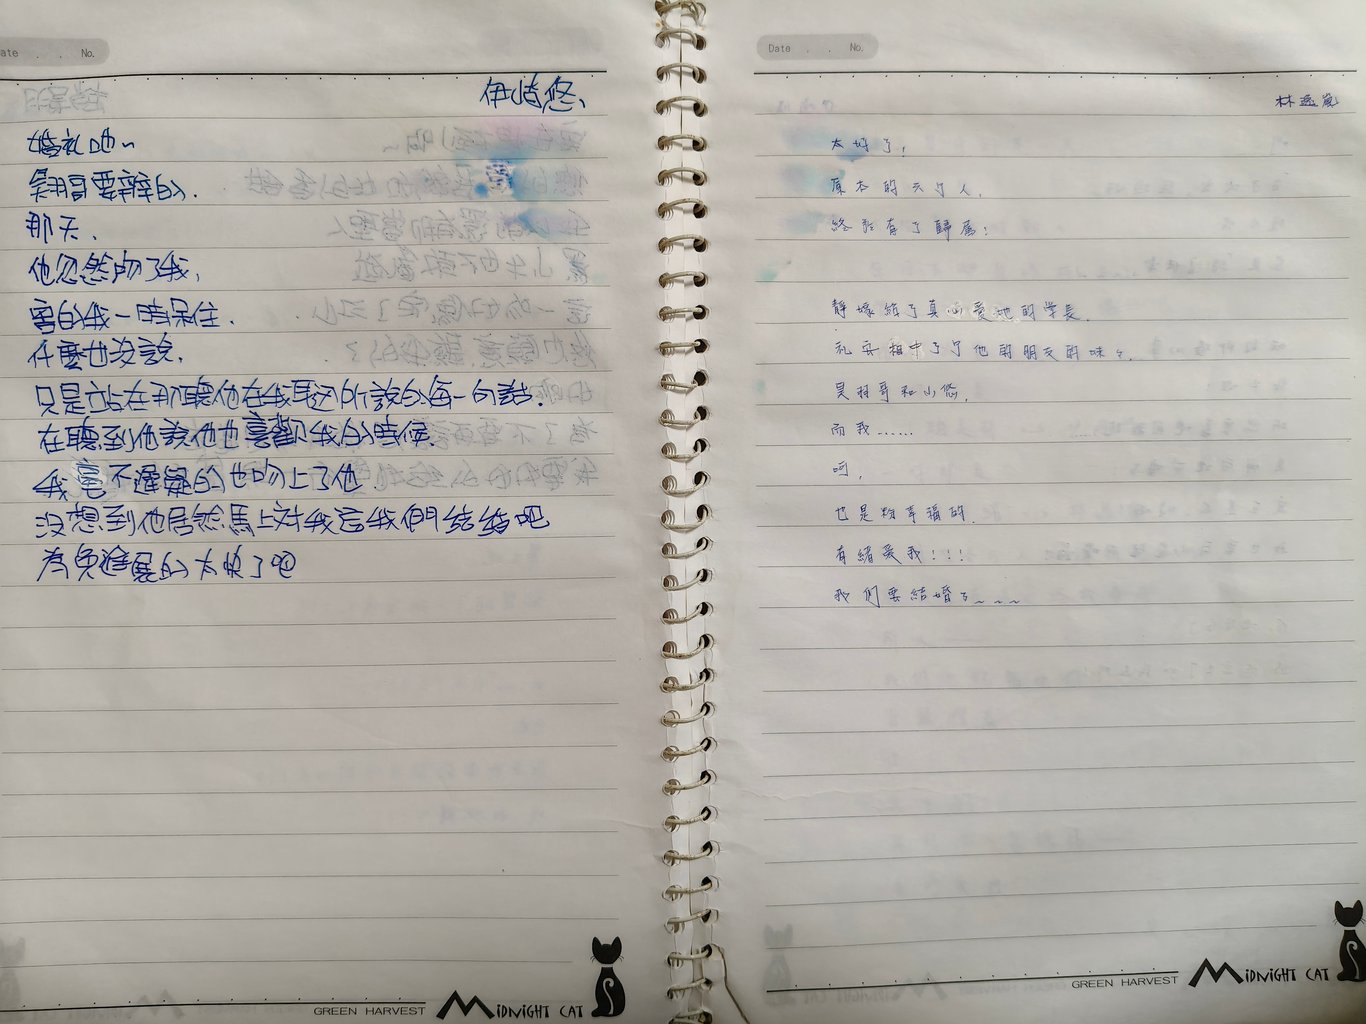 Date . . No.
伊悠、
婚礼吧~
翔哥要辦的.
那天、
他忽然吻了我,
害的我一時呆住.
什麼也沒說.
只是站在那聽他在我耳邊所說的每一句話.
在聽到他說他也喜歡我的時候.
我毫不遲疑的也吻上了他.
沒想到他居然馬上對我說我們結婚吧
為免進展的太快了吧
GREEN HARVEST MIDNIGHT CAT
Date . . No.
林逸嵐
太好了!
原本的六个人.
終於有了歸屬!
靜嫁給了真心愛她的学長.
礼兵相中了他的朋友的妹々.
昊翔哥和小悠.
而我……
呵,
也是粉幸福的.
有緒愛我!!!
我們要結婚了~~~
GREEN HARVEST MIDNIGHT CAT